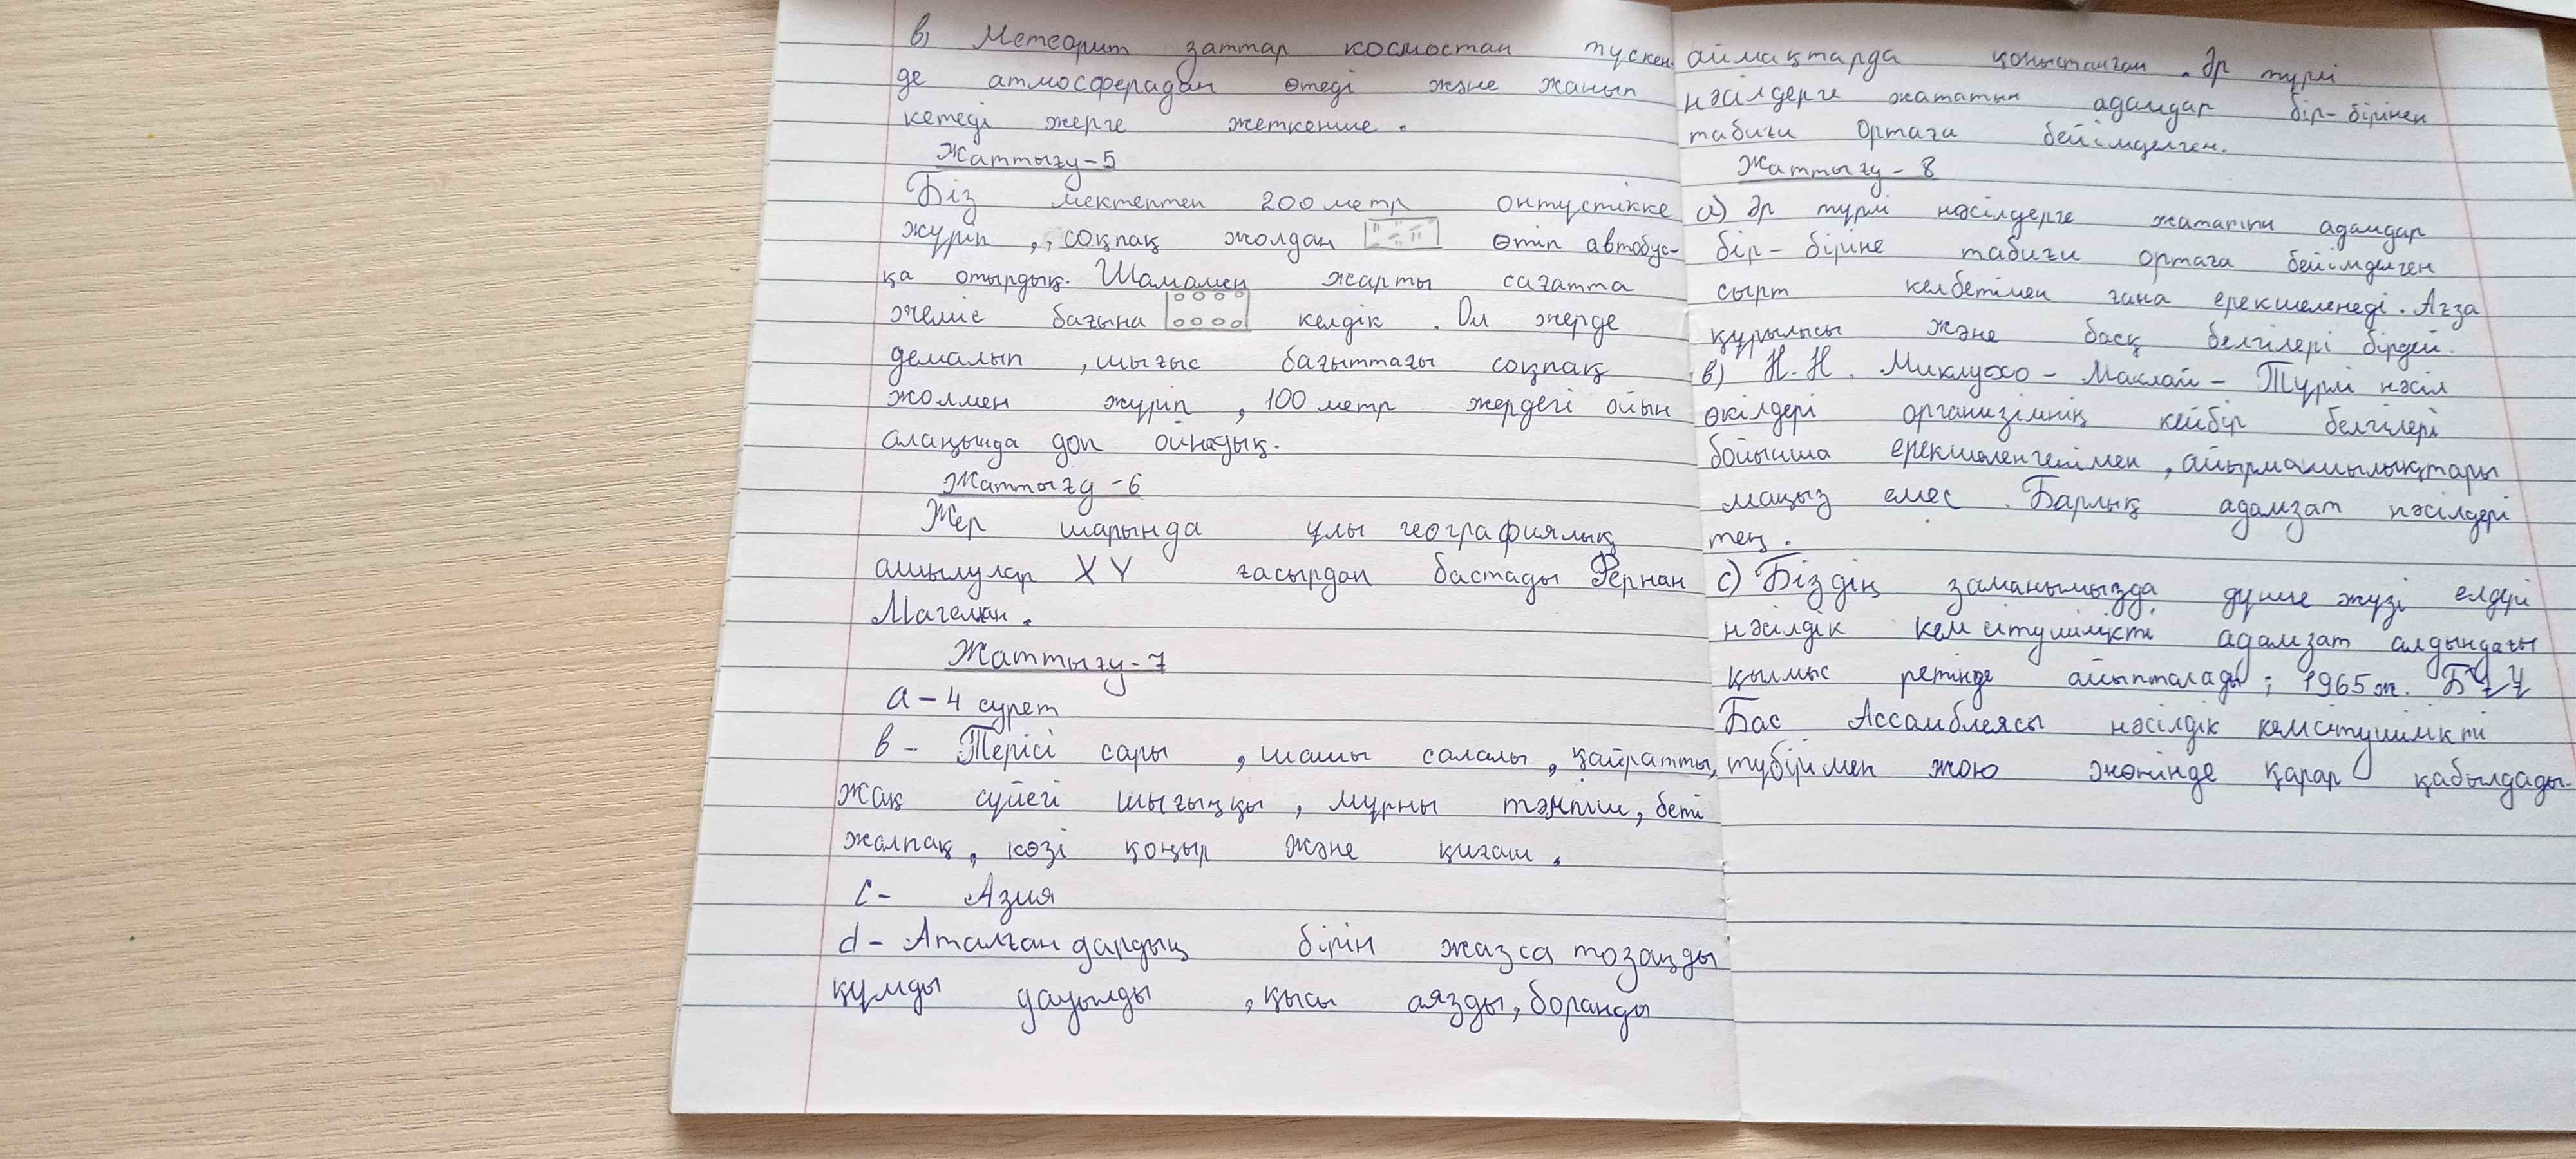 в) Метеорит заттар космостан түскен-
де атмосферадан өтеді және жанып
кетеді жерге жеткенше.
Жаттығу-5
Біз мектептен 200 метр онтустікке
жүріп, соқпақ жолдан өтіп автобус-
қа отырдық. Шамамен жарты сағатта
жеміс бағына келдік. Ол жерде
демалып, шығыс бағыттағы соқпақ
жолмен жүріп, 100 метр жердегі ойын
алаңында доп ойнадық.
Жаттығу-6
Жер шарында ұлы географиялық
ашылулар XY ғасырдан бастады Фернан
Магеллан.
Жаттығу-7
а - 4 сурет
в - Терісі сары, шашы салалы, қайратты,
жақ сүйегі шығыңқы, мұрны тәмпіш, беті
жалпақ, көзі қоңыр және қиғаш.
с - Азия
d - Аталғандардың бірін жазса тозаңды
құмды дауылды, қысы аязды, боранды
аймақтарда қоныстанған. Әр түрлі
нәсілдерге жататын адамдар бір-бірінен
табиғи ортаға бейімделген.
Жаттығу-8
а) Әр түрлі нәсілдерге жататын адамдар
бір-біріне табиғи ортаға бейімделген
сырт келбетімен ғана ерекшеленеді. Ағза
құрылысы және басқ белгілері бірдей.
в) Н.Н. Миклухо-Маклай - Түрлі нәсіл
өкілдері организімнің кейбір белгілері
бойынша ерекшеленгенімен, айырмашылықтары
маңыз емес. Барлық адамзат нәсілдері
тең.
с) Біздің заманымызда дүние жүзі елдері
нәсілдік кемсітушілікті адамзат алдындағы
қылмыс ретінде айыпталады; 1965 ж. БҰҰ
Бас Ассамблеясы нәсілдік кемсітушілікті
түбірімен жою жөнінде қарар қабылдады.